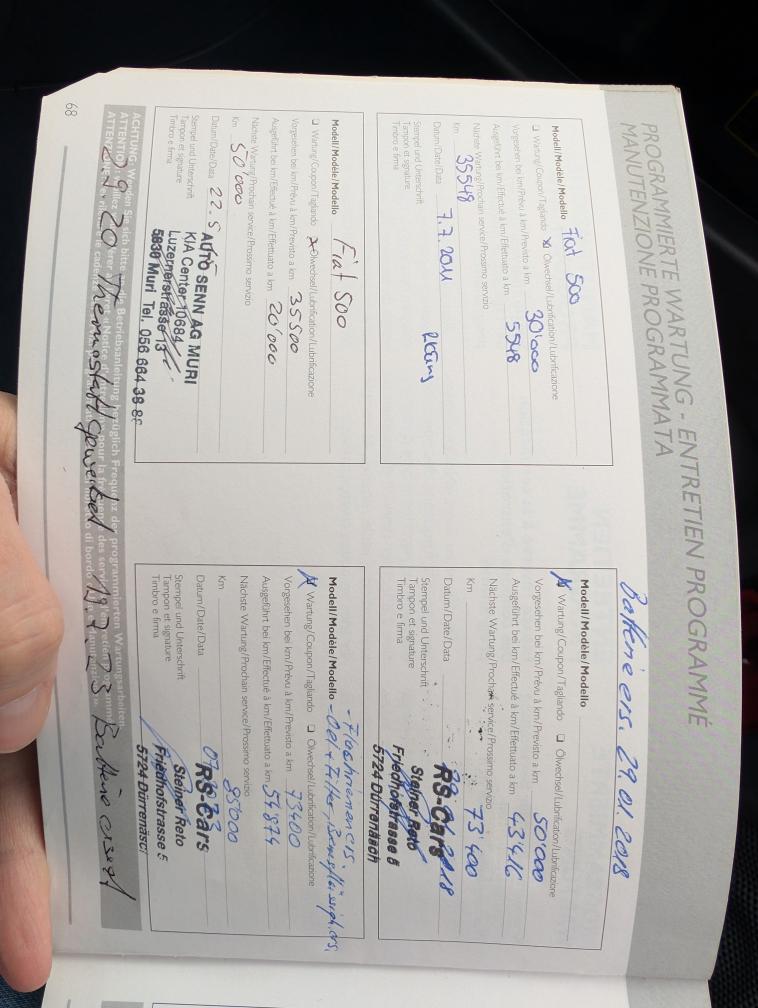 PROGRAMMIERTE WARTUNG - ENTRETIEN PROGRAMMÉ
MANUTENZIONE PROGRAMMATA
Modell/Modèle/Modello Fiat 500
❑ Wartung/Coupon/Tagliando ☒ Ölwechsel/Lubrification/Lubrificazione
Vorgesehen bei km/Prévu à km/Previsto a km 30'000
Ausgeführt bei km/Effectué à km/Effettuato a km 5548
Nächste Wartung/Prochain service/Prossimo servizio
Km 35548
Datum/Date/Data 7.7.2011
Stempel und Unterschrift
Tampon et signature
Timbro e firma
Batterie ers. 29.01.2018
Modell/Modèle/Modello
☒ Wartung/Coupon/Tagliando ❑ Ölwechsel/Lubrification/Lubrificazione
Vorgesehen bei km/Prévu à km/Previsto a km 50'000
Ausgeführt bei km/Effectué à km/Effettuato a km 43'416
Nächste Wartung/Prochain service/Prossimo servizio
Km 73'400
Datum/Date/Data
Stempel und Unterschrift
Tampon et signature
Timbro e firma
RS-Cars
Steiner Reto
Friedhofstrasse 5
5724 Dürrenäsch
Modell/Modèle/Modello Fiat 500
❑ Wartung/Coupon/Tagliando ☒ Ölwechsel/Lubrification/Lubrificazione
Vorgesehen bei km/Prévu à km/Previsto a km 35500
Ausgeführt bei km/Effectué à km/Effettuato a km 20'000
Nächste Wartung/Prochain service/Prossimo servizio
Km 50'000
Datum/Date/Data 22.5
Stempel und Unterschrift
Tampon et signature
Timbro e firma
AUTO SENN AG MURI
KIA Center 10684
Luzernerstrasse 13
5630 Muri Tel. 056 664 38 88
Modell/Modèle/Modello - Oel + Filter, Bremsflüssigk. ers.
☒ Wartung/Coupon/Tagliando ❑ Ölwechsel/Lubrification/Lubrificazione
Vorgesehen bei km/Prévu à km/Previsto a km 73400
Ausgeführt bei km/Effectué à km/Effettuato a km 54874
Nächste Wartung/Prochain service/Prossimo servizio
Km 85'000
Datum/Date/Data
Stempel und Unterschrift
Tampon et signature
Timbro e firma
RS-Cars
Steiner Reto
Friedhofstrasse 5
5724 Dürrenäsch
ACHTUNG: Wenden Sie sich bitte Betriebsanleitung bezüglich Frequenz der programmierten Wartungsarbeiten
Thermostatt gewechselt Batterie ersetzt
68